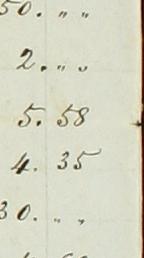 50. „ „
2. „ „
5. 58
4. 35
30. „ „